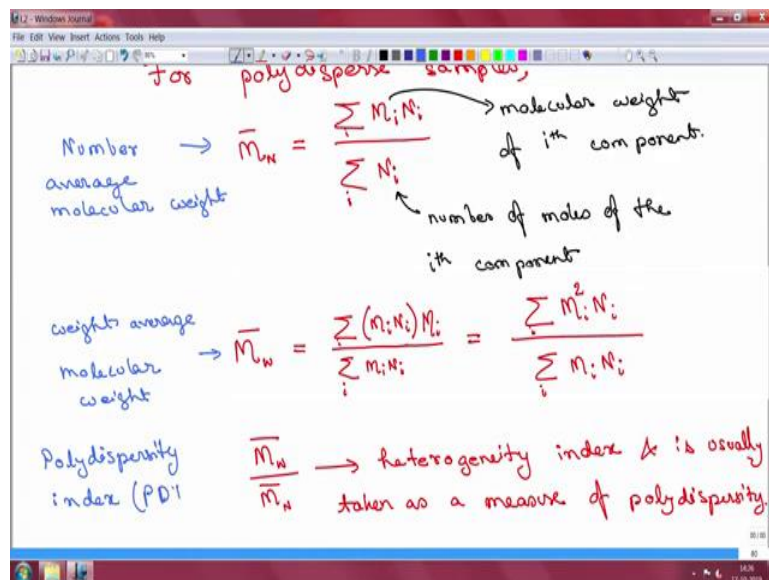 L2 - Windows Journal
File Edit View Insert Actions Tools Help
For polydisperse samples,
Number average molecular weight → M̅_N = Σ_i M_i N_i / Σ_i N_i
→ molecular weight
of i^th component.
number of moles of the
i^th component
weights average molecular weight → M̅_w = Σ_i (M_i N_i) M_i / Σ_i M_i N_i = Σ_i M_i^2 N_i / Σ_i M_i N_i
Polydispersity index (PDI
M̅_w / M̅_N → heterogeneity index & is usually
taken as a measure of polydispersity.
80
14:26